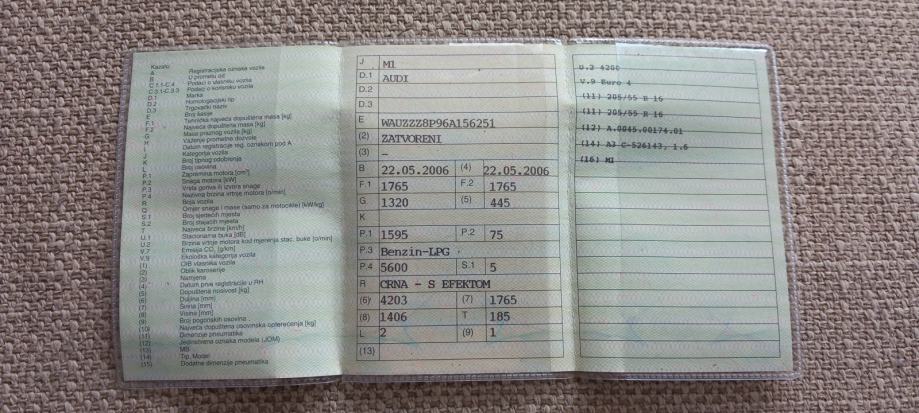 Kazalo:
A Registracijska oznaka vozila
B U prometu od
C.1.1-C.4 Podaci o vlasniku vozila
C.3.1-C.3.3 Podaci o korisniku vozila
D.1 Marka
D.2 Homologacijski tip
D.3 Trgovački naziv
E Broj šasije
F.1 Tehnička najveća dopuštena masa [kg]
F.2 Najveća dopuštena masa [kg]
G Masa praznog vozila [kg]
H Važenje prometne dozvole
I Datum registracije reg. oznakom pod A
J Kategorija vozila
K Broj tipnog odobrenja
L Broj osovina
P.1 Zapremina motora [cm³]
P.2 Snaga motora [kW]
P.3 Vrsta goriva ili izvora snage
P.4 Nazivna brzina vrtnje motora [o/min]
R Boja vozila
Q Omjer snage i mase (samo za motocikle) [kW/kg]
S.1 Broj sjedećih mjesta
S.2 Broj stajaćih mjesta
T Najveća brzina [km/h]
U.1 Stacionarna buka [dB]
U.2 Brzina vrtnje motora kod mjerenja stac. buke [o/min]
V.7 Emisija CO₂ [g/km]
V.9 Ekološka kategorija vozila
(1) OIB vlasnika vozila
(2) Oblik karoserije
(3) Namjena
(4) Datum prve registracije u RH
(5) Dopuštena nosivost [kg]
(6) Duljina [mm]
(7) Širina [mm]
(8) Visina [mm]
(9) Broj pogonskih osovina
(10) Najveća dopuštena osovinska opterećenja [kg]
(11) Dimenzije pneumatika
(12) Jedinstvena oznaka modela (JOM)
(13) MB
(14) Tip, Model
(15) Dodatne dimenzije pneumatika
J M1
D.1 AUDI
D.2
D.3
E WAUZZZ8P96A156251
(2) ZATVORENI
(3) –
B 22.05.2006 (4) 22.05.2006
F.1 1765 F.2 1765
G 1320 (5) 445
K
P.1 1595 P.2 75
P.3 Benzin-LPG
P.4 5600 S.1 5
R CRNA - S EFEKTOM
(6) 4203 (7) 1765
(8) 1406 T 185
L 2 (9) 1
(13)
U.2 4200
V.9 Euro 4
(11) 205/55 R 16
(11) 205/55 R 16
(12) A.0045.00174.01
(14) A3 C-526143, 1.6
(16) M1